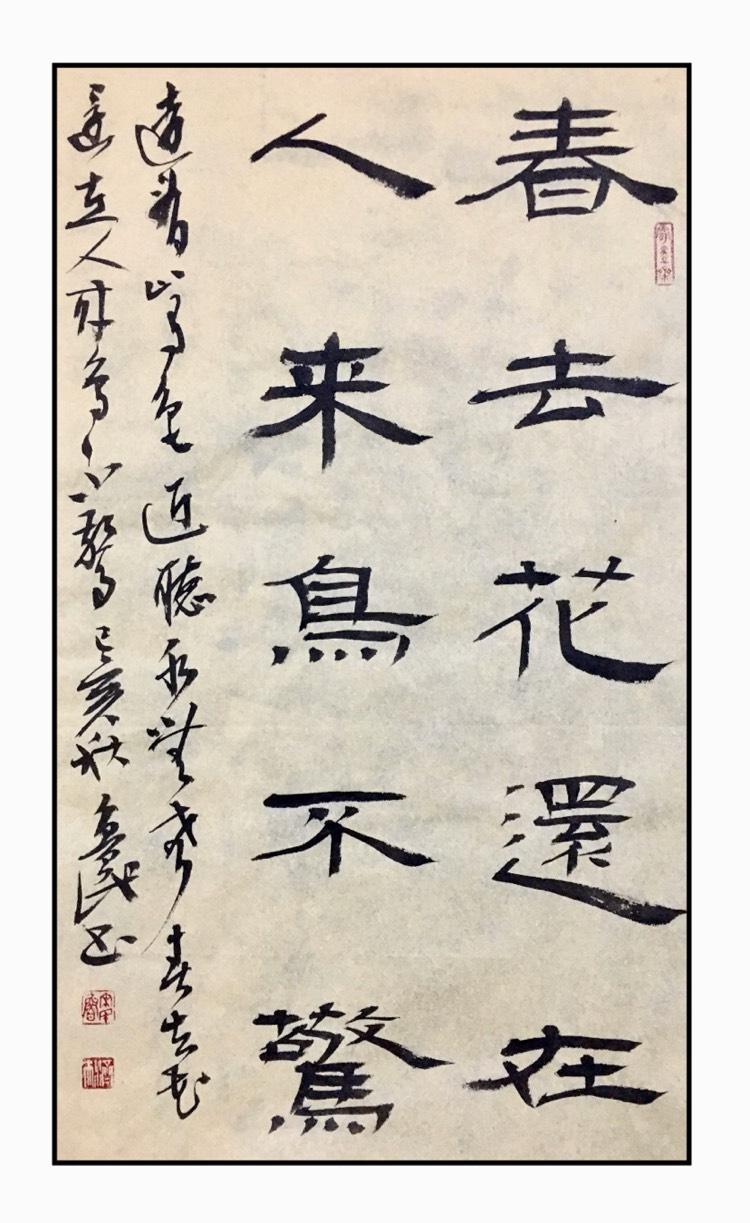 春去花還在
人来鳥不驚
遠看山有色近聽水無聲春去花
還在人来鳥不驚己亥秋民书